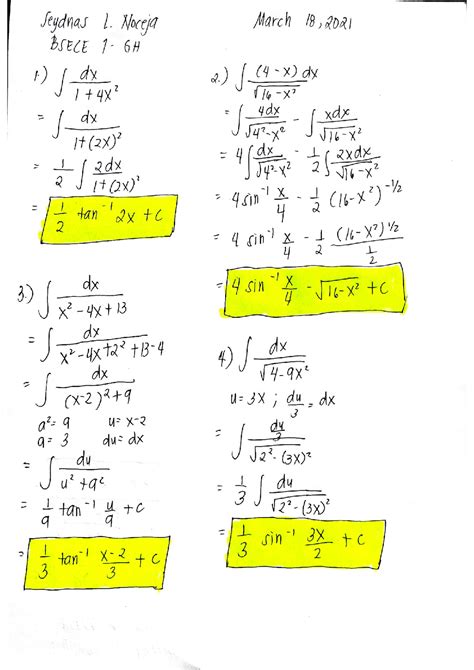 Seydnas L. Noceja
March 18, 2021
BSECE 1 - GH
1.) ∫ dx / (1 + 4x²)
= ∫ dx / (1+(2x)²)
= 1/2 ∫ 2dx / (1+(2x)²)
= 1/2 tan⁻¹ 2x + c
2.) ∫ (4 - x) dx / √(16 - x²)
= ∫ 4dx / √(4² - x²) - ∫ xdx / √(16 - x²)
= 4 ∫ dx / √(4² - x²) - 1/2 ∫ 2xdx / √(16 - x²)
= 4 sin⁻¹ x/4 - 1/2 (16 - x²)^(-1/2)
= 4 sin⁻¹ x/4 - 1/2 (16 - x²)^(1/2) / (1/2)
= 4 sin⁻¹ x/4 - √(16 - x²) + c
3.) ∫ dx / (x² - 4x + 13)
= ∫ dx / (x² - 4x + 2² + 13 - 4)
= ∫ dx / ((x-2)² + 9)
a² = 9 u = x-2
a = 3 du = dx
= ∫ du / (u² + a²)
= 1/a tan⁻¹ u/a + c
= 1/3 tan⁻¹ (x-2)/3 + c
4.) ∫ dx / √(4 - 9x²)
u = 3x ; du/3 = dx
= ∫ (du/3) / √(2² - (3x)²)
= 1/3 ∫ du / √(2² - (3x)²)
= 1/3 sin⁻¹ 3x/2 + c